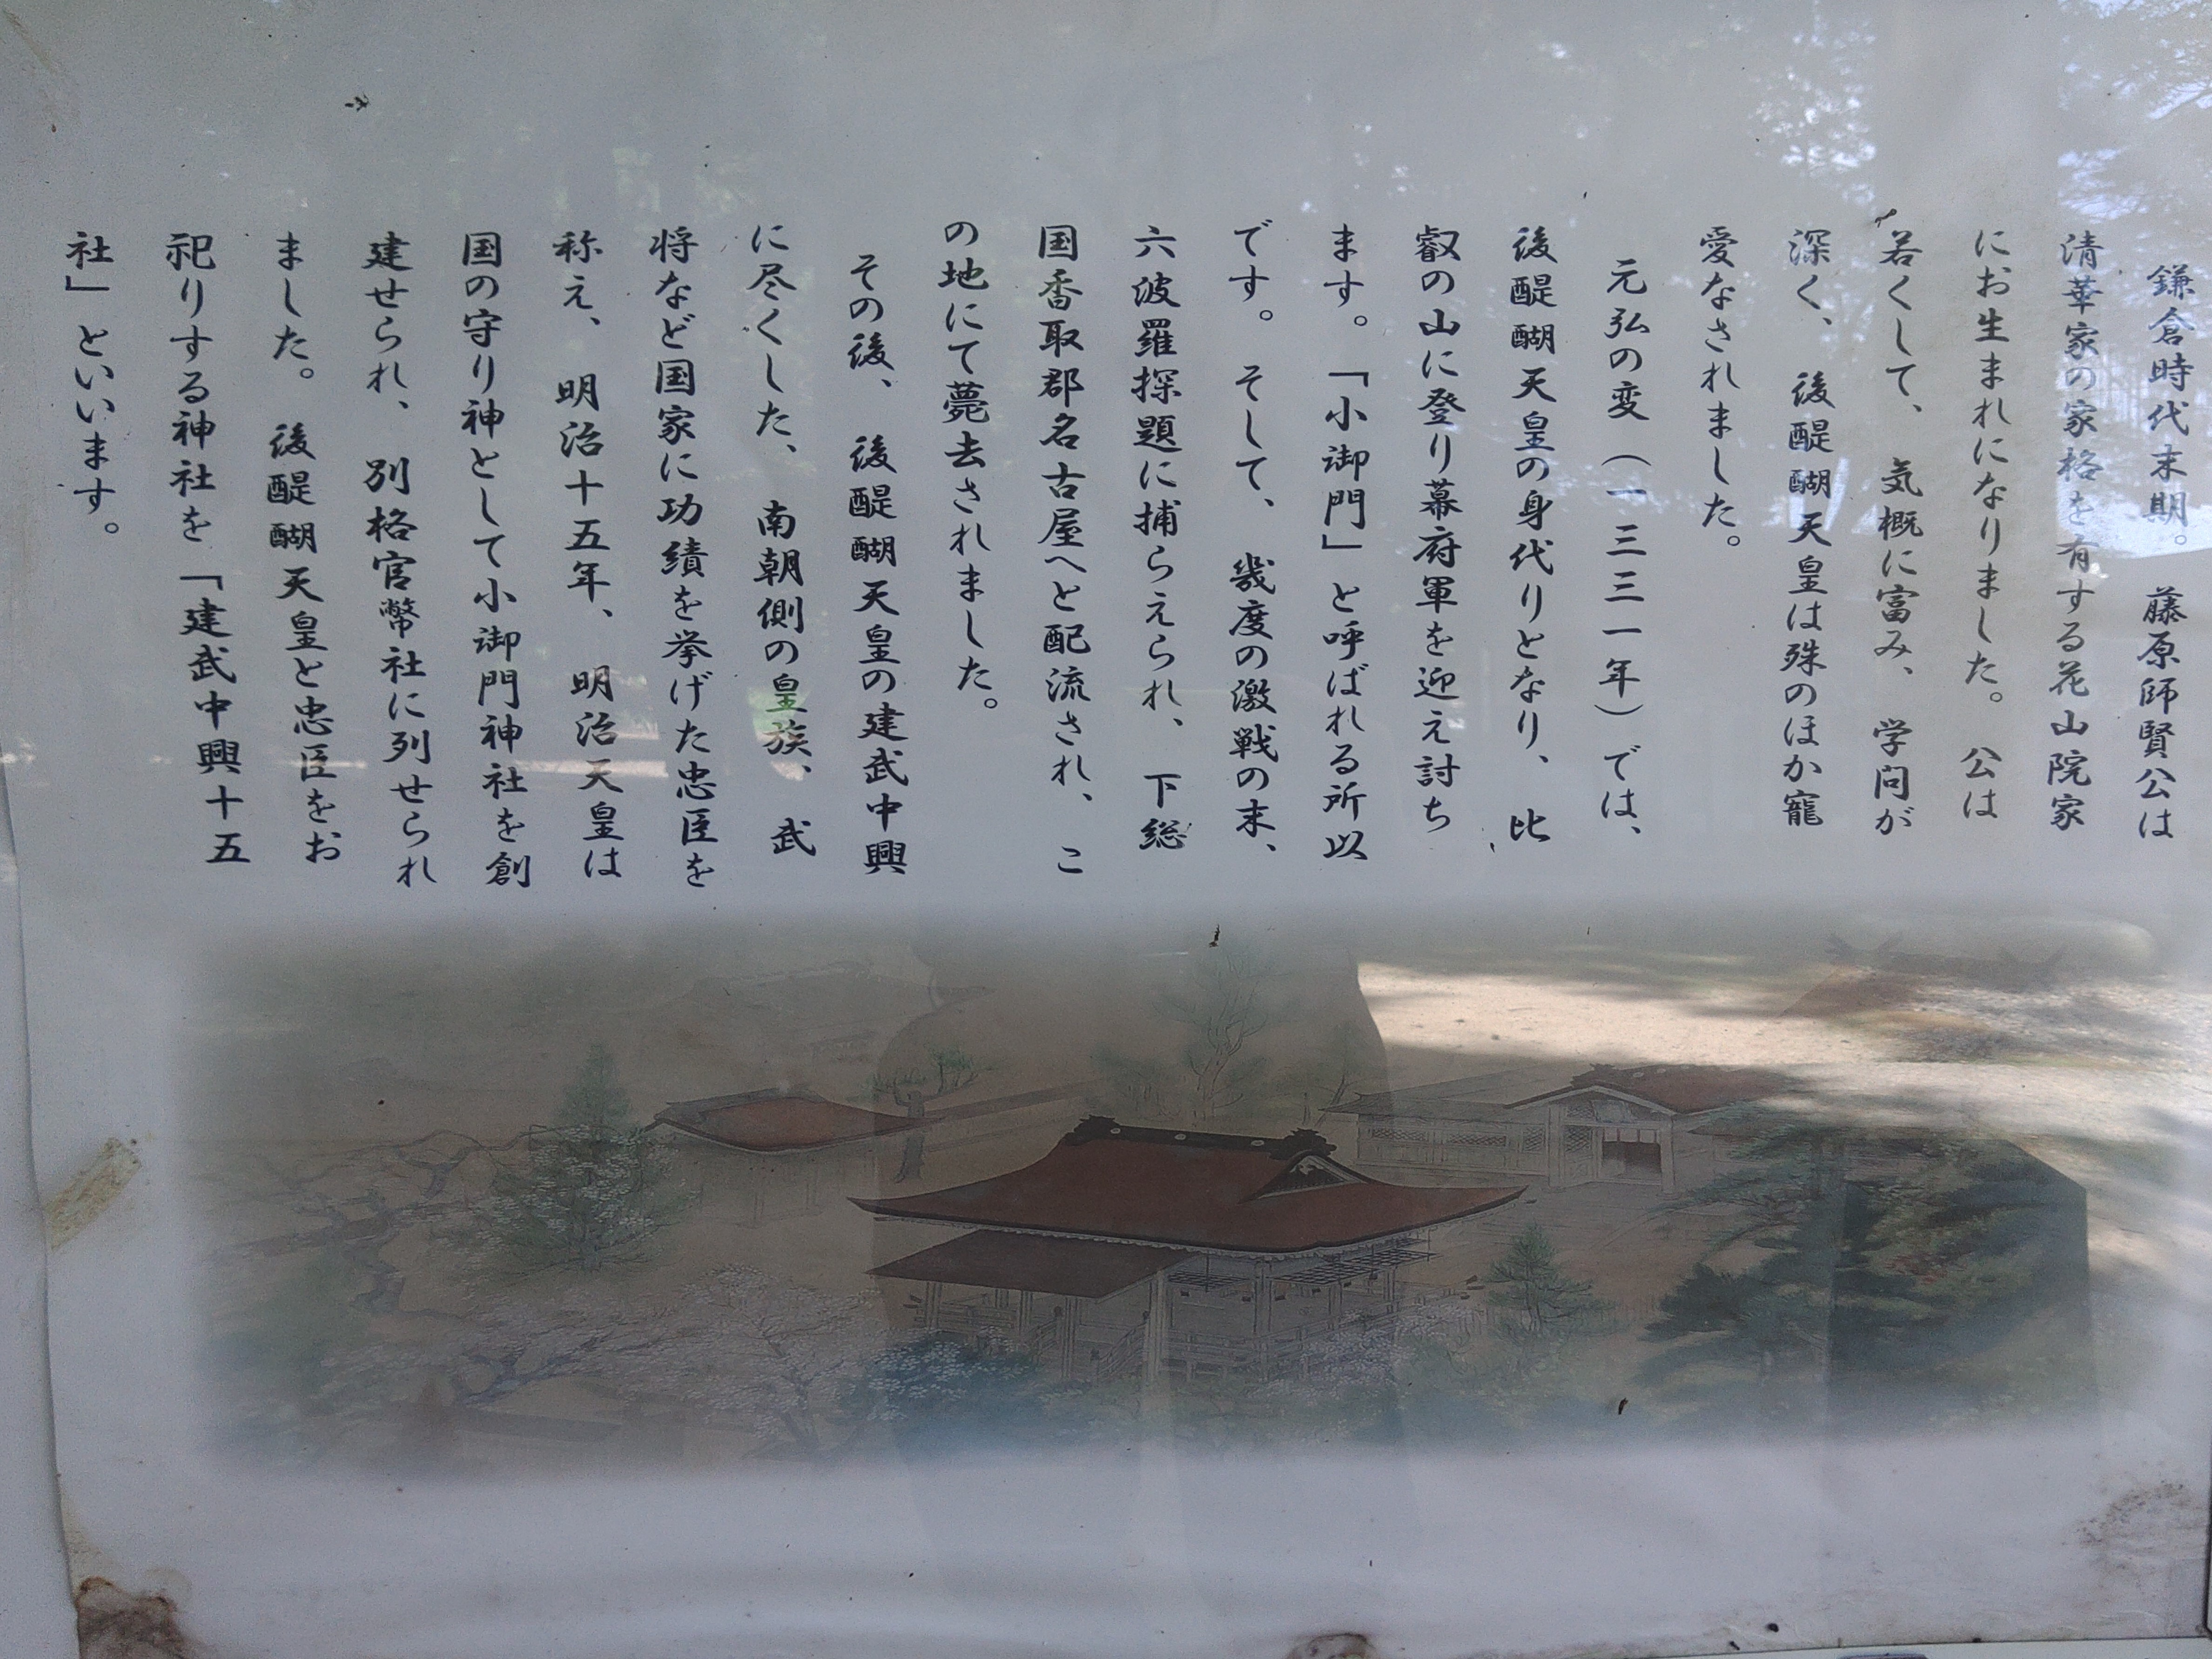 鎌倉時代末期。藤原師賢公は
清華家の家格を有する花山院家
にお生まれになりました。公は
若くして、気概に富み、学問が
深く、後醍醐天皇は殊のほか寵
愛なされました。
元弘の変（一三三一年）では、
後醍醐天皇の身代りとなり、比
叡の山に登り幕府軍を迎え討ち
ます。「小御門」と呼ばれる所以
です。そして、幾度の激戦の末、
六波羅探題に捕らえられ、下総
国香取郡名古屋へと配流され、こ
の地にて薨去されました。
その後、後醍醐天皇の建武中興
に尽くした、南朝側の皇族、武
将など国家に功績を挙げた忠臣を
称え、明治十五年、明治天皇は
国の守り神として小御門神社を創
建せられ、別格官幣社に列せられ
ました。後醍醐天皇と忠臣をお
祀りする神社を「建武中興十五
社」といいます。